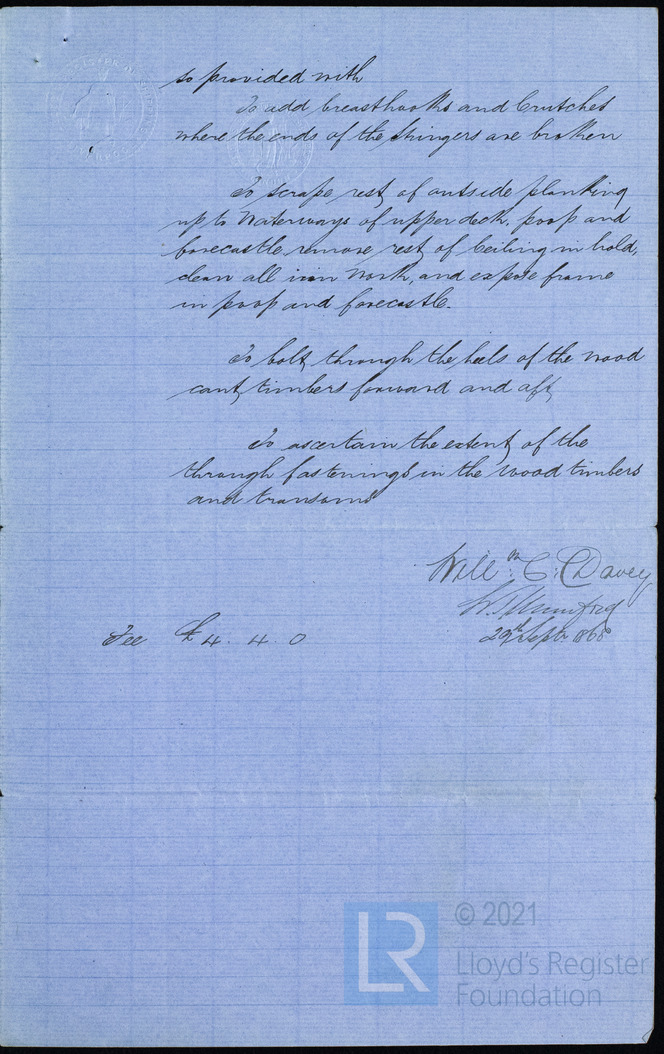 so provided with
To add breasthooks and Crutches
where the ends of the stringers are broken
To scrape rest of outside planking
up to Waterways of upper deck, poop and
forecastle remove rest of Ceiling in hold,
clean all iron work, and expose frame
in poop and forecastle.
To bolt through the heels of the wood
cant timbers forward and aft
To ascertain the extent of the
through fastenings in the wood timbers
and transoms
Will.m C. Davey
W. Mumford
29th Septr 1868
Fee £4. 4. 0
LR
© 2021
Lloyd's Register
Foundation